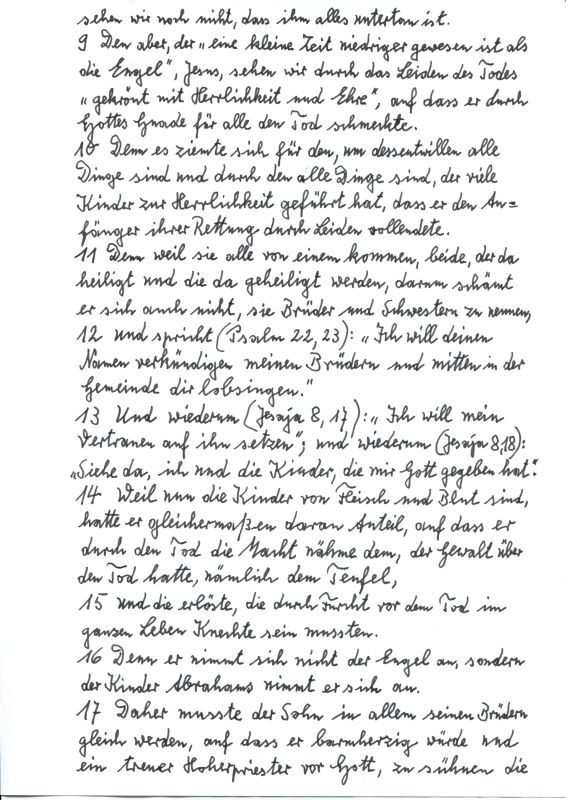 sehen wir noch nicht, dass ihm alles untertan ist.
9 Den aber, der „eine kleine Zeit niedriger gewesen ist als
die Engel“, Jesus, sehen wir durch das Leiden des Todes
„gekrönt mit Herrlichkeit und Ehre“, auf dass er durch
Gottes Gnade für alle den Tod schmeckte.
10 Denn es ziemte sich für den, um dessentwillen alle
Dinge sind und durch den alle Dinge sind, der viele
Kinder zur Herrlichkeit geführt hat, dass er den An=
fänger ihrer Rettung durch Leiden vollendete.
11 Denn weil sie alle von einem kommen, beide, der da
heiligt und die da geheiligt werden, darum schämt
er sich auch nicht, sie Brüder und Schwestern zu nennen,
12 und spricht (Psalm 22, 23): „Ich will deinen
Namen verkündigen meinen Brüdern und mitten in der
Gemeinde dir lobsingen.“
13 Und wiederum (Jesaja 8, 17): „Ich will mein
Vertrauen auf ihn setzen“; und wiederum (Jesaja 8,18):
„Siehe da, ich und die Kinder, die mir Gott gegeben hat“.
14 Weil nun die Kinder von Fleisch und Blut sind,
hatte er gleichermaßen daran Anteil, auf dass er
durch den Tod die Macht nähme dem, der Gewalt über
den Tod hatte, nämlich dem Teufel,
15 und die erlöste, die durch Furcht vor dem Tod im
ganzen Leben Knechte sein mussten.
16 Denn er nimmt sich nicht der Engel an, sondern
der Kinder Abrahams nimmt er sich an.
17 Daher musste der Sohn in allem seinen Brüdern
gleich werden, auf dass er barmherzig würde und
ein treuer Hoherpriester vor Gott, zu sühnen die